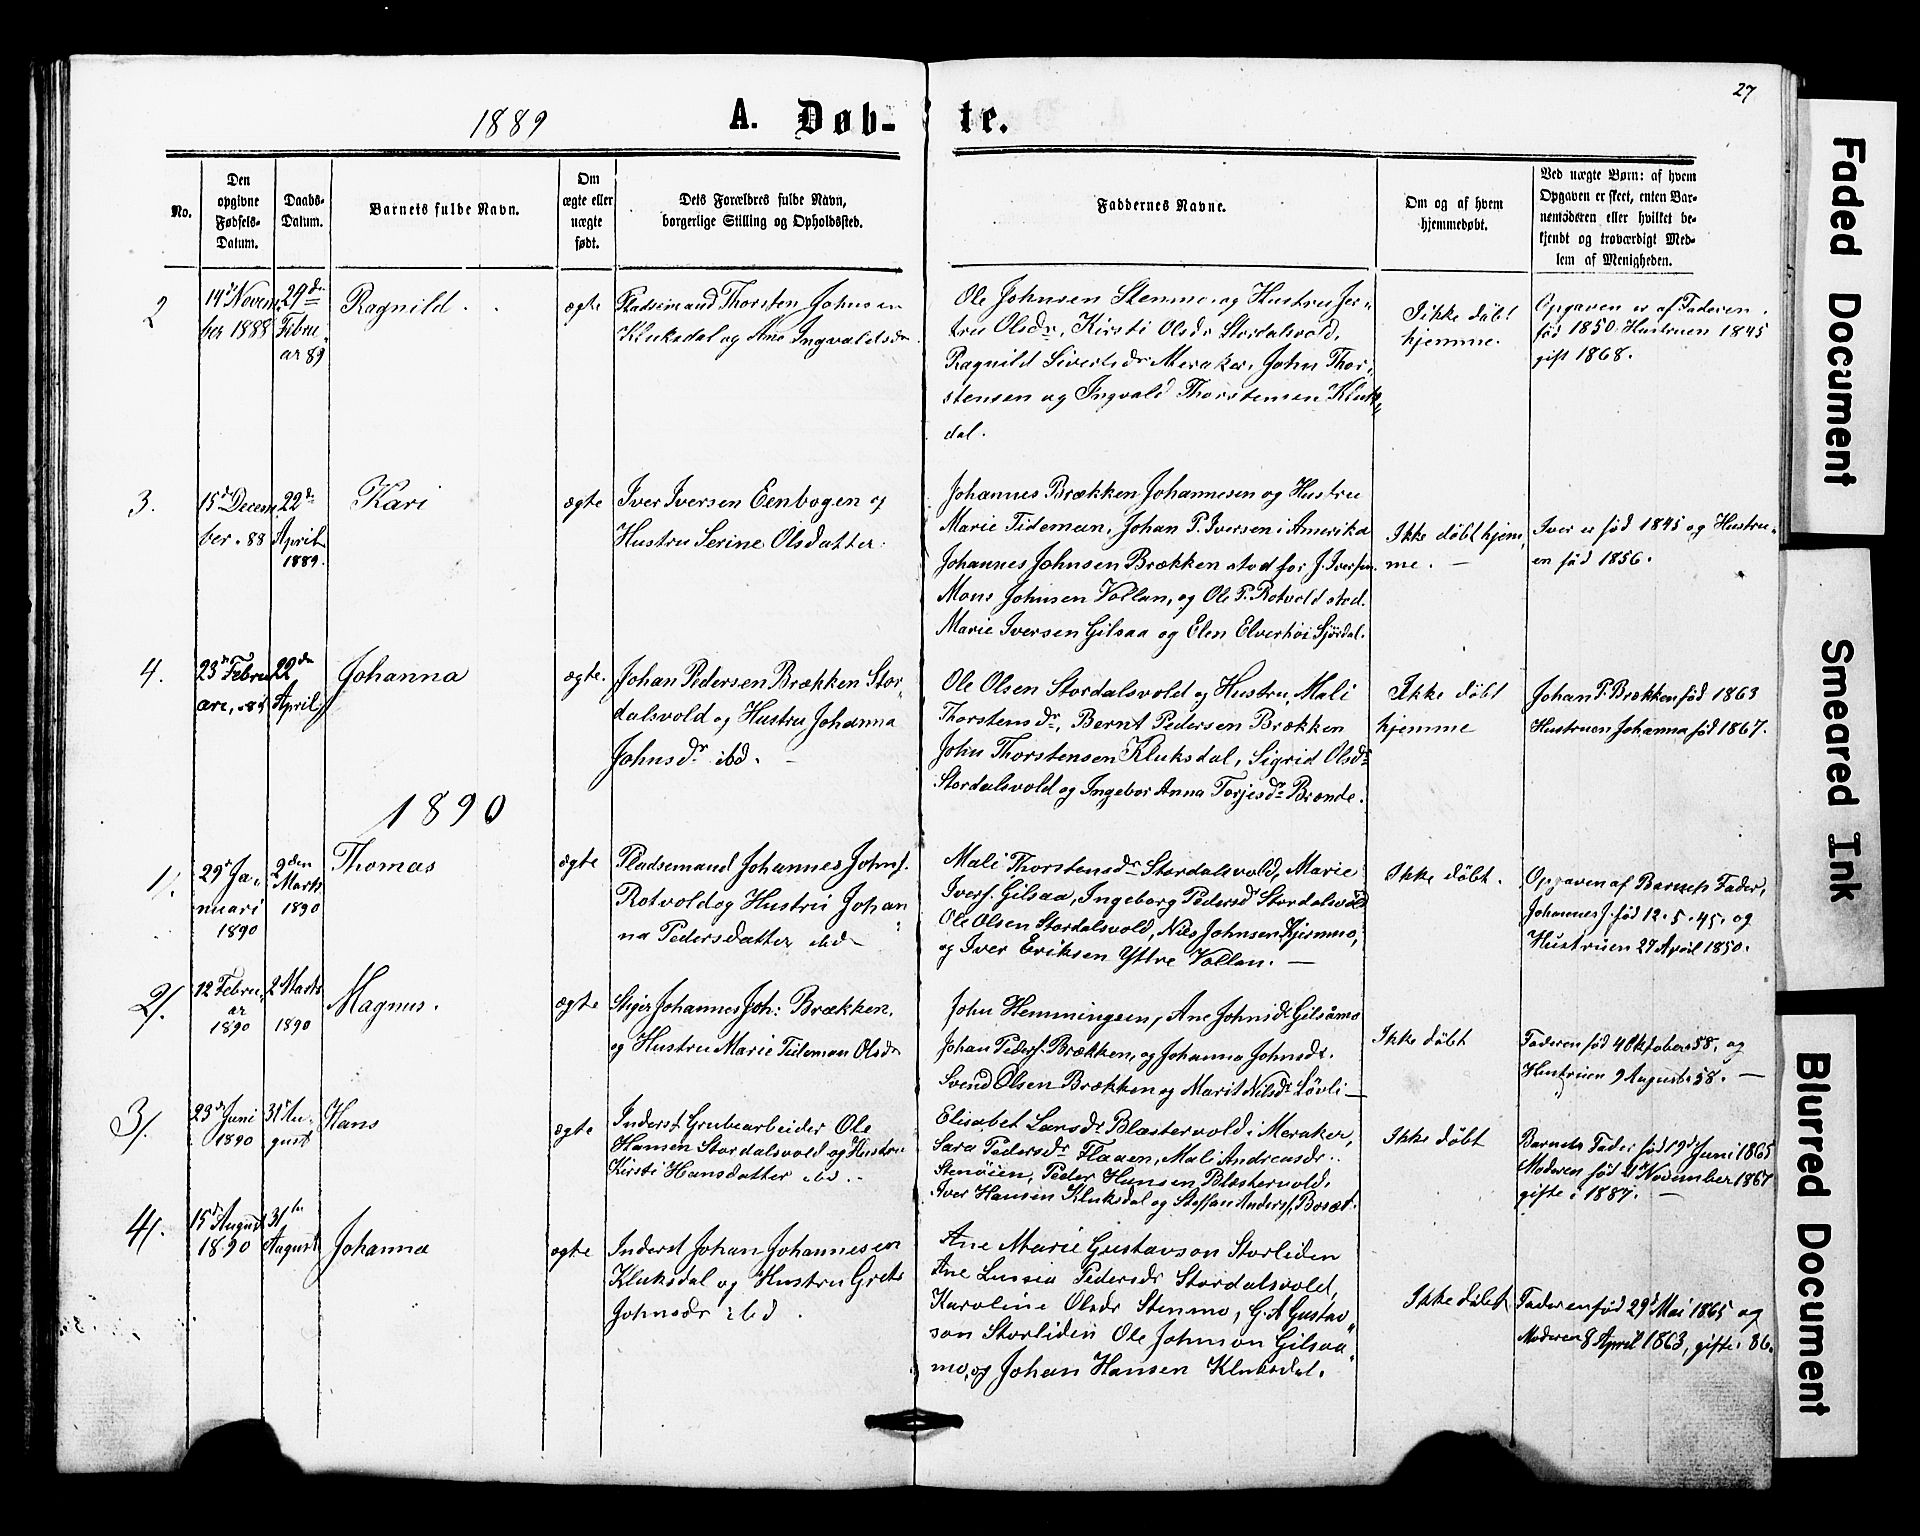 27
1889 A. Døb- te.
No.
Den opgivne Fødsels-Datum.
Daabs-Datum.
Barnets fulde Navn.
Om ægte eller uægte født.
Dets Forældres fulde Navn, borgerlige Stilling og Opholdssted.
Faddernes Navne.
Om og af hvem hjemmedøbt.
Ved uægte Børn: af hvem Opgaven er skeet, enten Barnemoderen eller hvilket bekjendt og troværdigt Medlem af Menigheden.
2
14d Novem
ber 1888
29de
Febru
ar 89
Ragnild.
ægte
Pladsemand Thorsten Johnsen
Kluksdal og Ane Ingvaldsdr
Ole Johnsen Stenmo og Hustru Jer-
tru Olsdr, Kirsti Olsdr Stordalsvold,
Ragnild Sivertsdr Meraker, John Thor-
stensen og Ingvald Thorstensen Kluks
dal.
Ikke døbt
hjemme.
Opgaven er af Faderen.
fød 1850. Hustruen 1845
gift 1868.
3.
15d Decem
ber. 88
22de
April
1889.
Kari
ægte
Iver Iversen Eenbogen og
Hustru Serine Olsdatter
Johannes Brækken Johannesen og Hustru
Marie Tideman, Johan P. Iversen i Amerika
Johannes Johnsen Brækken stod for J. Iversen.
Mons Johnsen Vollan, og Ole P. Rotvold stod.
Marie Iversen Gilsaa og Elen Elverhöi Sjördal.
Ikke døbt hjem,
me. —
Iver er fød 1845 og Hustru-
en fød 1856.
4.
23d Febru
are, 89
22de
April
Johanna
ægte.
Johan Pedersen Brækken Stor
dalsvold og Hustru Johanna
Johnsdr ibd. —
Ole Olsen Stordalsvold og Hustru, Mali
Thorstensdr, Bernt Pedersen Brækken
John Thorstensen Kluksdal, Sigrid Olsdr
Stordalsvold og Ingebor Anna Torjesdr Brende.
Ikke døbt
hjemme
Johan P. Brækken fød 1863
Hustruen Johanna fød 1867.
1890
1/.
29d Ja-
nuari
1890
2den
Marts
1890
Thomas
ægte
Pladsemand Johannes Johnf.
Rotvold og Hustru Johan
na Pedersdatter ibd
Mali Thorstensdr Stordalsvold, Marie
Iverf. Gilsaa, Ingeborg Pedersdr Stordalsvold
Ole Olsen Stordalsvold, Nils Johnsen Kjernmo,
og Iver Eriksen Yttre Vollan. —
Ikke døbt.
Opgaven af Barnets Fader,
Johannes J. fød 12.5.45, og
Hustruen 27 April 1850.
2/.
12 Febru,
ar
1890
2 Marts
1890
Magnus.
ægte
Johannes Joh: Brækken,
og Hustru Marie Tideman Olsdr
John Hemmingsen, Ane Johnsdr Gilsåmo
Johan Pederf. Brækken, og Johanna Johnsdr.
Svend Olsen Brækken og Marit Nilsdr Lövli —
Ikke döbt
Faderen fød 4 Oktober 58, og
Hustruen 9 August 58. —
3/.
23d Juni
1890
31t Au-
gust
Hans
ægte
Inderst Grubearbeider Ole
Hansen Stordalsvold og Hustru
Kirsti Hansdatter ibd.
Elisabet Larsdr Blæstervold i Meraker,
Sara Pedersdr Flaaen, Mali Andreasdr.
Stenöien, Peder Hansen Blæstervold,
Iver Hansen Kluksdal og Steffan Anderf. Bosæt.
Ikke døbt
Barnets Fader fød 19d Juni 1865
Moderen fød 21d November 1867
gifte i 1887. —
4/.
15d August
1890
31te
August
Johanna
ægte
Inderst Johan Johannesen
Kluksdal og Hustru Grete
Johnsdr ibd.
Ane Marie Gustavson Storliden
Ane Lussia Pedersdr Stordalsvold,
Karoline Olsdr Stenmo, G. A Gustav
son Storliden Ole Johnson Gilsaa
mo, og Johan Hansen Kluksdal.
Ikke døbt
Faderen fød 29d Mai 1865 og
Moderen 8 April 1863, gifte. 86.
Faded Document
Smeared Ink
Blurred Document